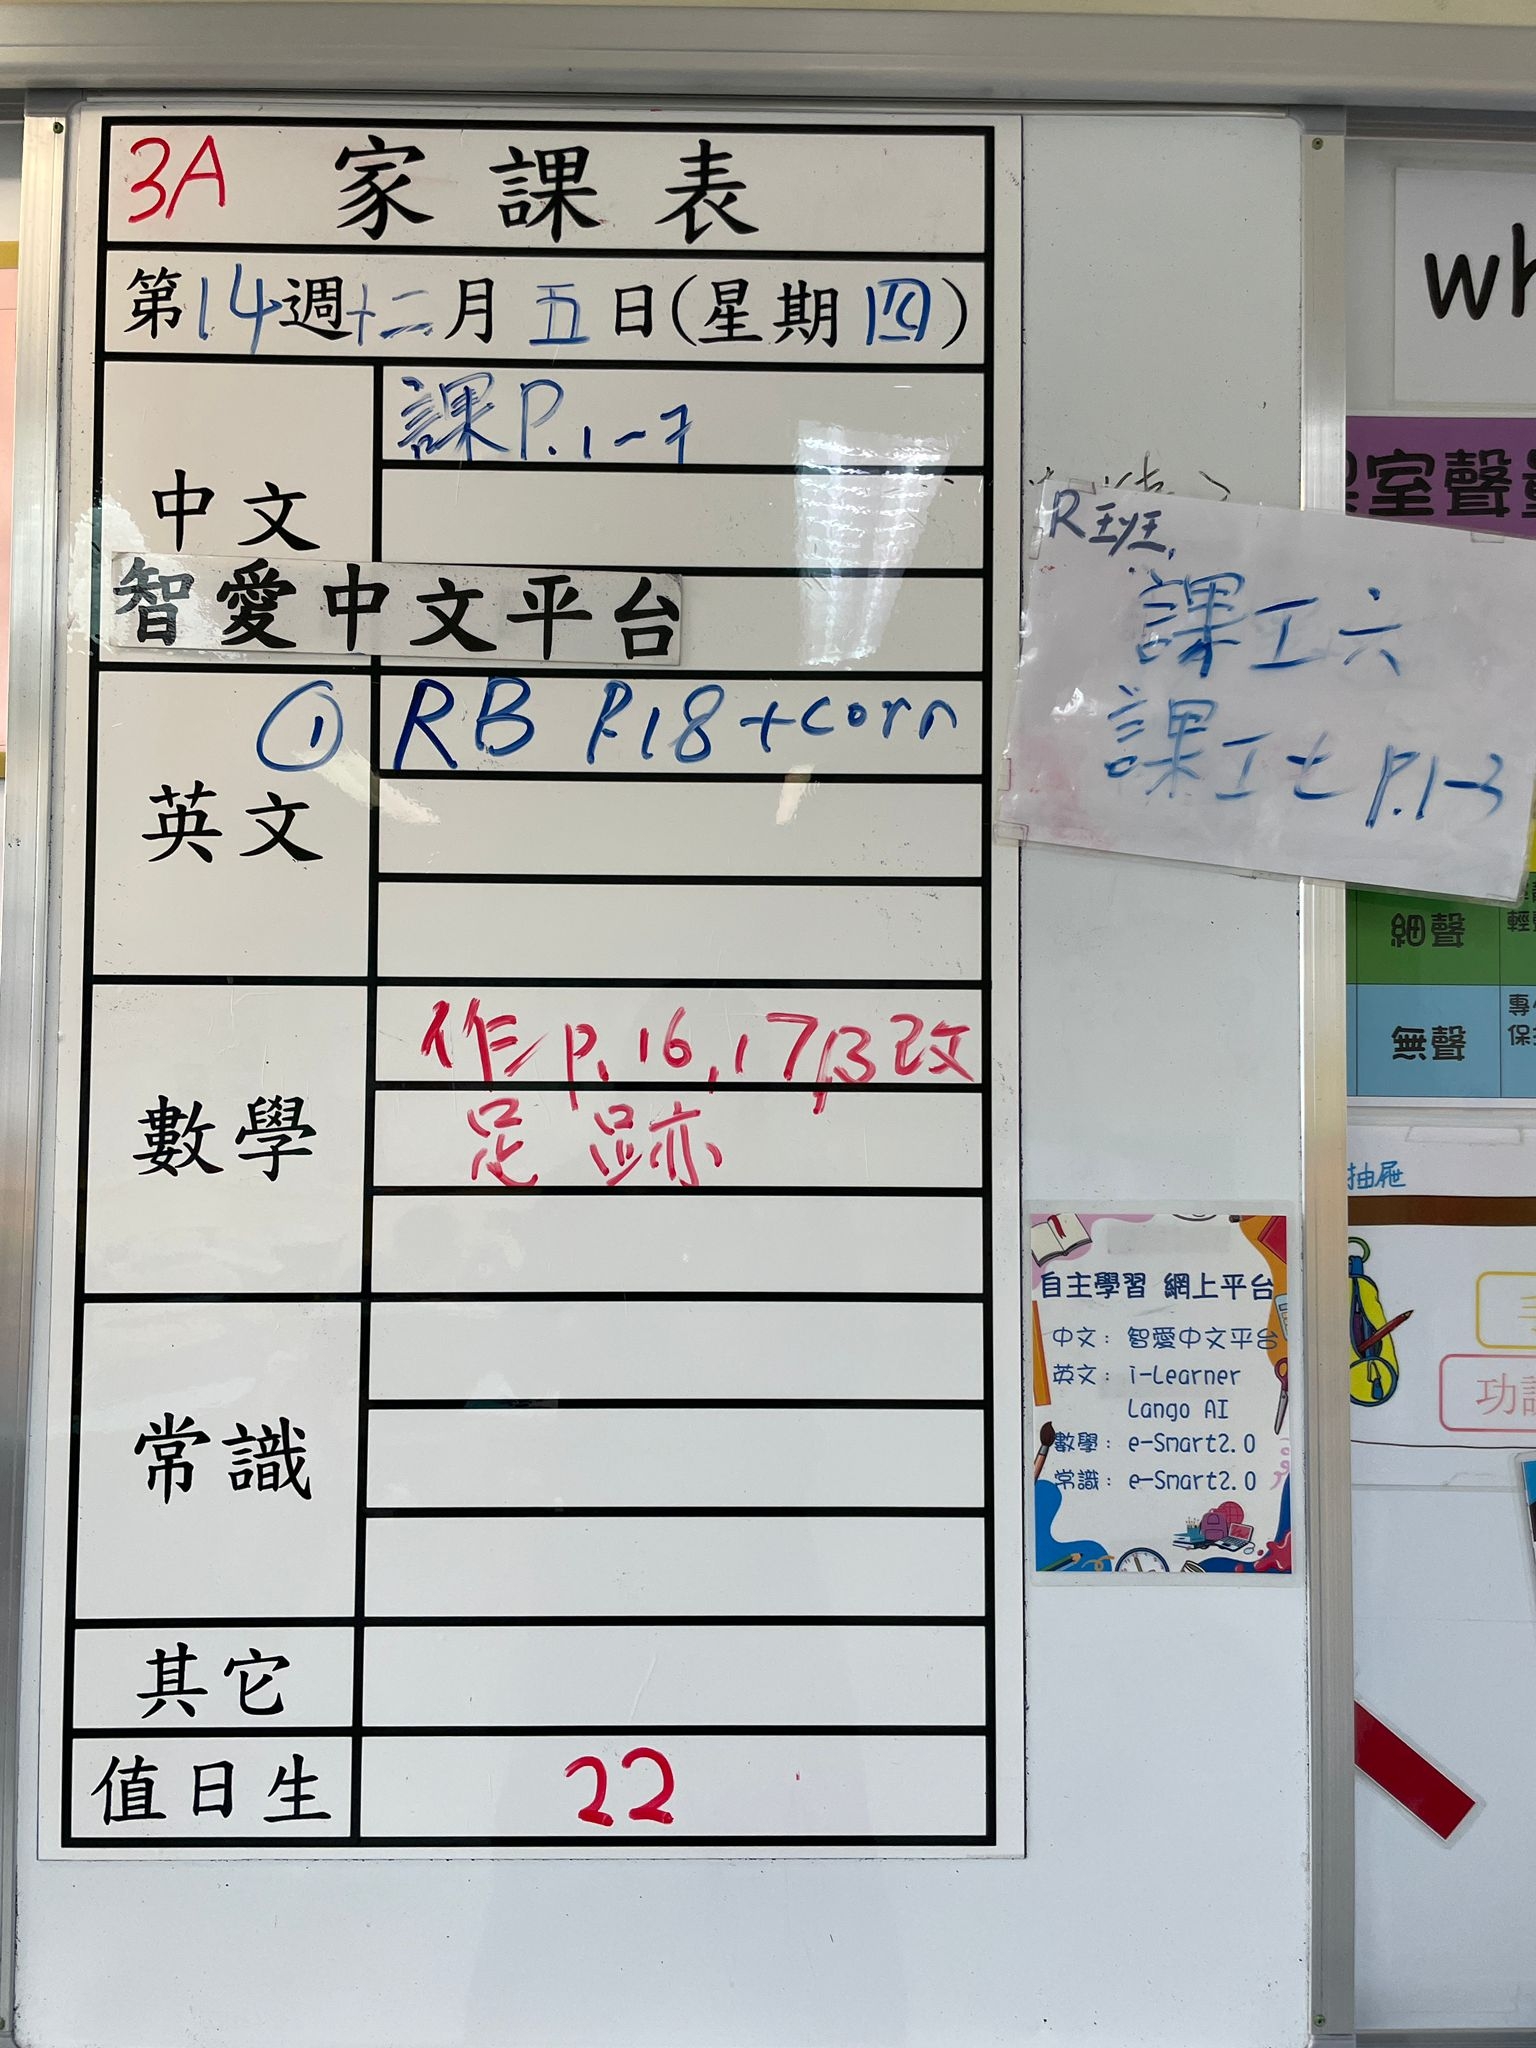 3A 家課表
第14週十二月五日(星期四)
中文
課P.1-7
智愛中文平台
英文
① RB P.18+corr
數學
作p.16,17,13改
足跡
常識
其它
值日生
22
R班
課工六
課工七 P.1-3
自主學習 網上平台
中文: 智愛中文平台
英文: i-Learner
Lango AI
數學: e-Smart2.0
常識: e-Smart2.0
wh
室聲
細聲
輕
無聲
專
保
抽屜
功